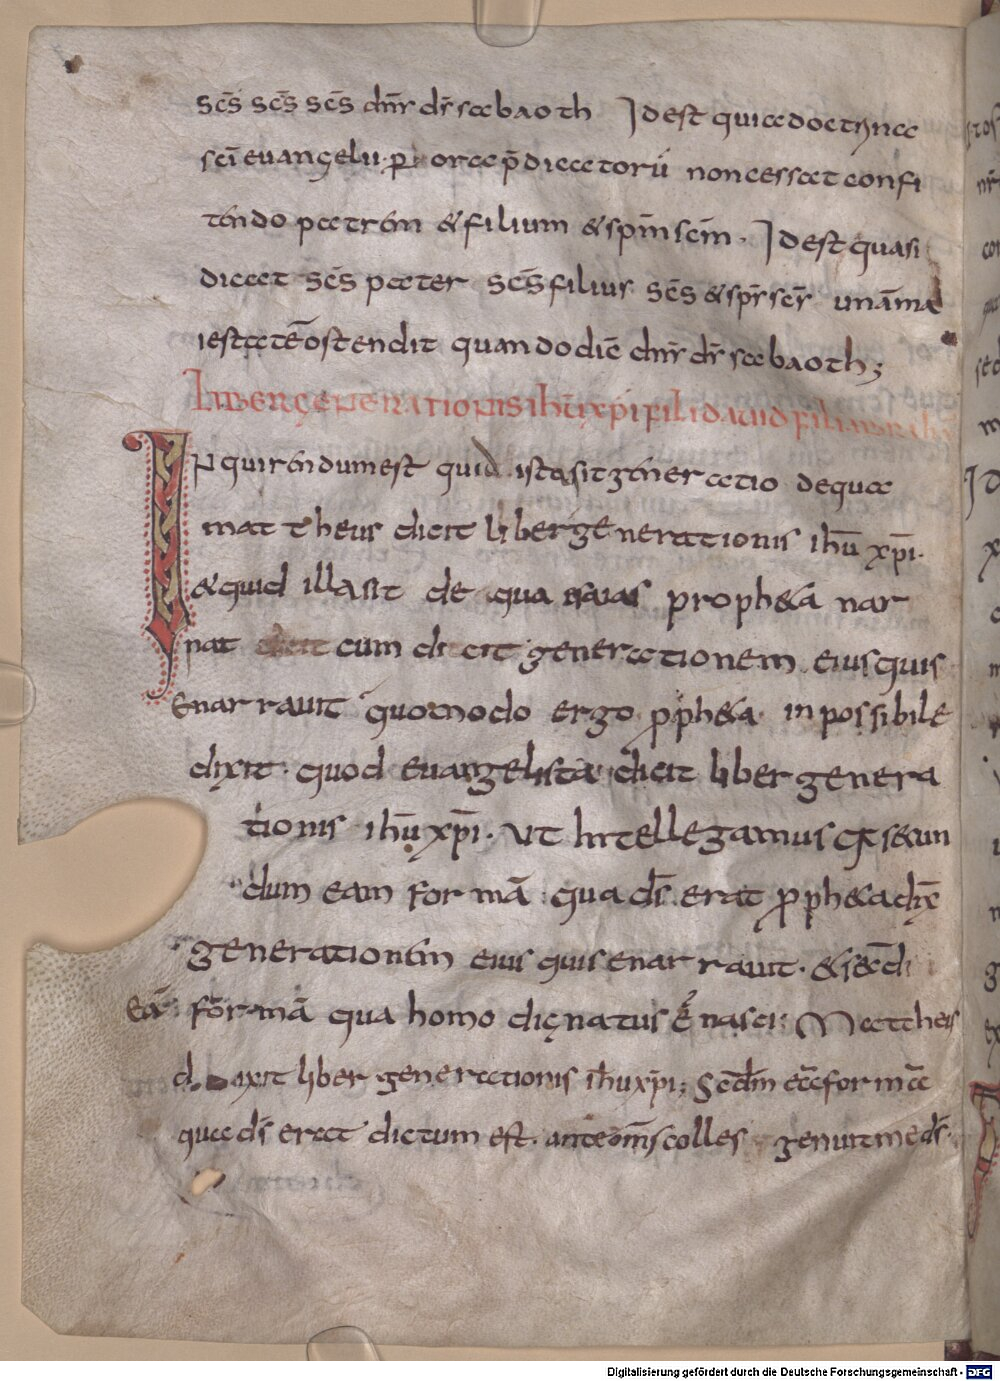 sc̄s sc̄s sc̄s dn̄r dr̄ sabaoth Idest quia doctrina
sc̄i evangelii p̄ ora p̄dicatorū non cessat confi
tendo patrem & filium & sp̄m sc̄m. Idest quasi
dicat sc̄s pater sc̄s filius sc̄s & sp̄s sc̄s unā ma
iestatē ostendit quando dic̄ dn̄s ds̄ sabaoth;
Liber generationis ih̄u xp̄i filii david filii
Inquirendum est quid ista sit generatio de qua
mattheus dicit liber generationis ih̄u xp̄i.
& quid illa sit de qua esaias propheta nar
nat cum dicit generationem eius quis
enarravit quomodo ergo p̄pheta inpossibile
dixit. quod evangelista dicit liber genera
tionis ih̄u xp̄i. Ut intellegamus q secun
dum eam formā qua ds̄ erat p̄pheta dix̄
generationem eius quis enarravit. & secd̄i
eā formā qua homo dignatus ē nasci: Matheus
dixit liber generationis ih̄u xp̄i; Secd̄m eā formā
qua ds̄ erat dictum est. ante om̄s colles genuit me ds̄.
Digitalisierung gefördert durch die Deutsche Forschungsgemeinschaft - DFG